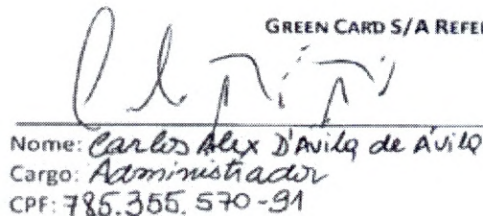 GREEN CARD S/A REFE
Nome: Carlos Alex D'Avila de Ávila
Cargo: Administrador
CPF: 785.355.570-91